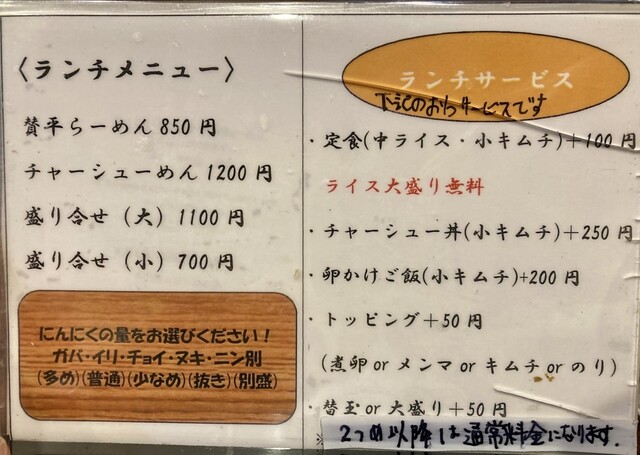 〈ランチメニュー〉
賛平らーめん 850 円
チャーシューめん 1200 円
盛り合せ (大) 1100 円
盛り合せ (小) 700 円
にんにくの量をお選びください！
ガバ・イリ・チョイ・ヌキ・ニン別
(多め)(普通)(少なめ)(抜き)(別盛)
ランチサービス
・定食(中ライス・小キムチ)＋100 円
ライス大盛り無料
・チャーシュー丼(小キムチ)＋250 円
・卵かけご飯(小キムチ)+200 円
・トッピング＋50 円
(煮卵 or メンマ or キムチ or のり)
・替玉 or 大盛り＋50 円
2つめ以降は通常料金になります.